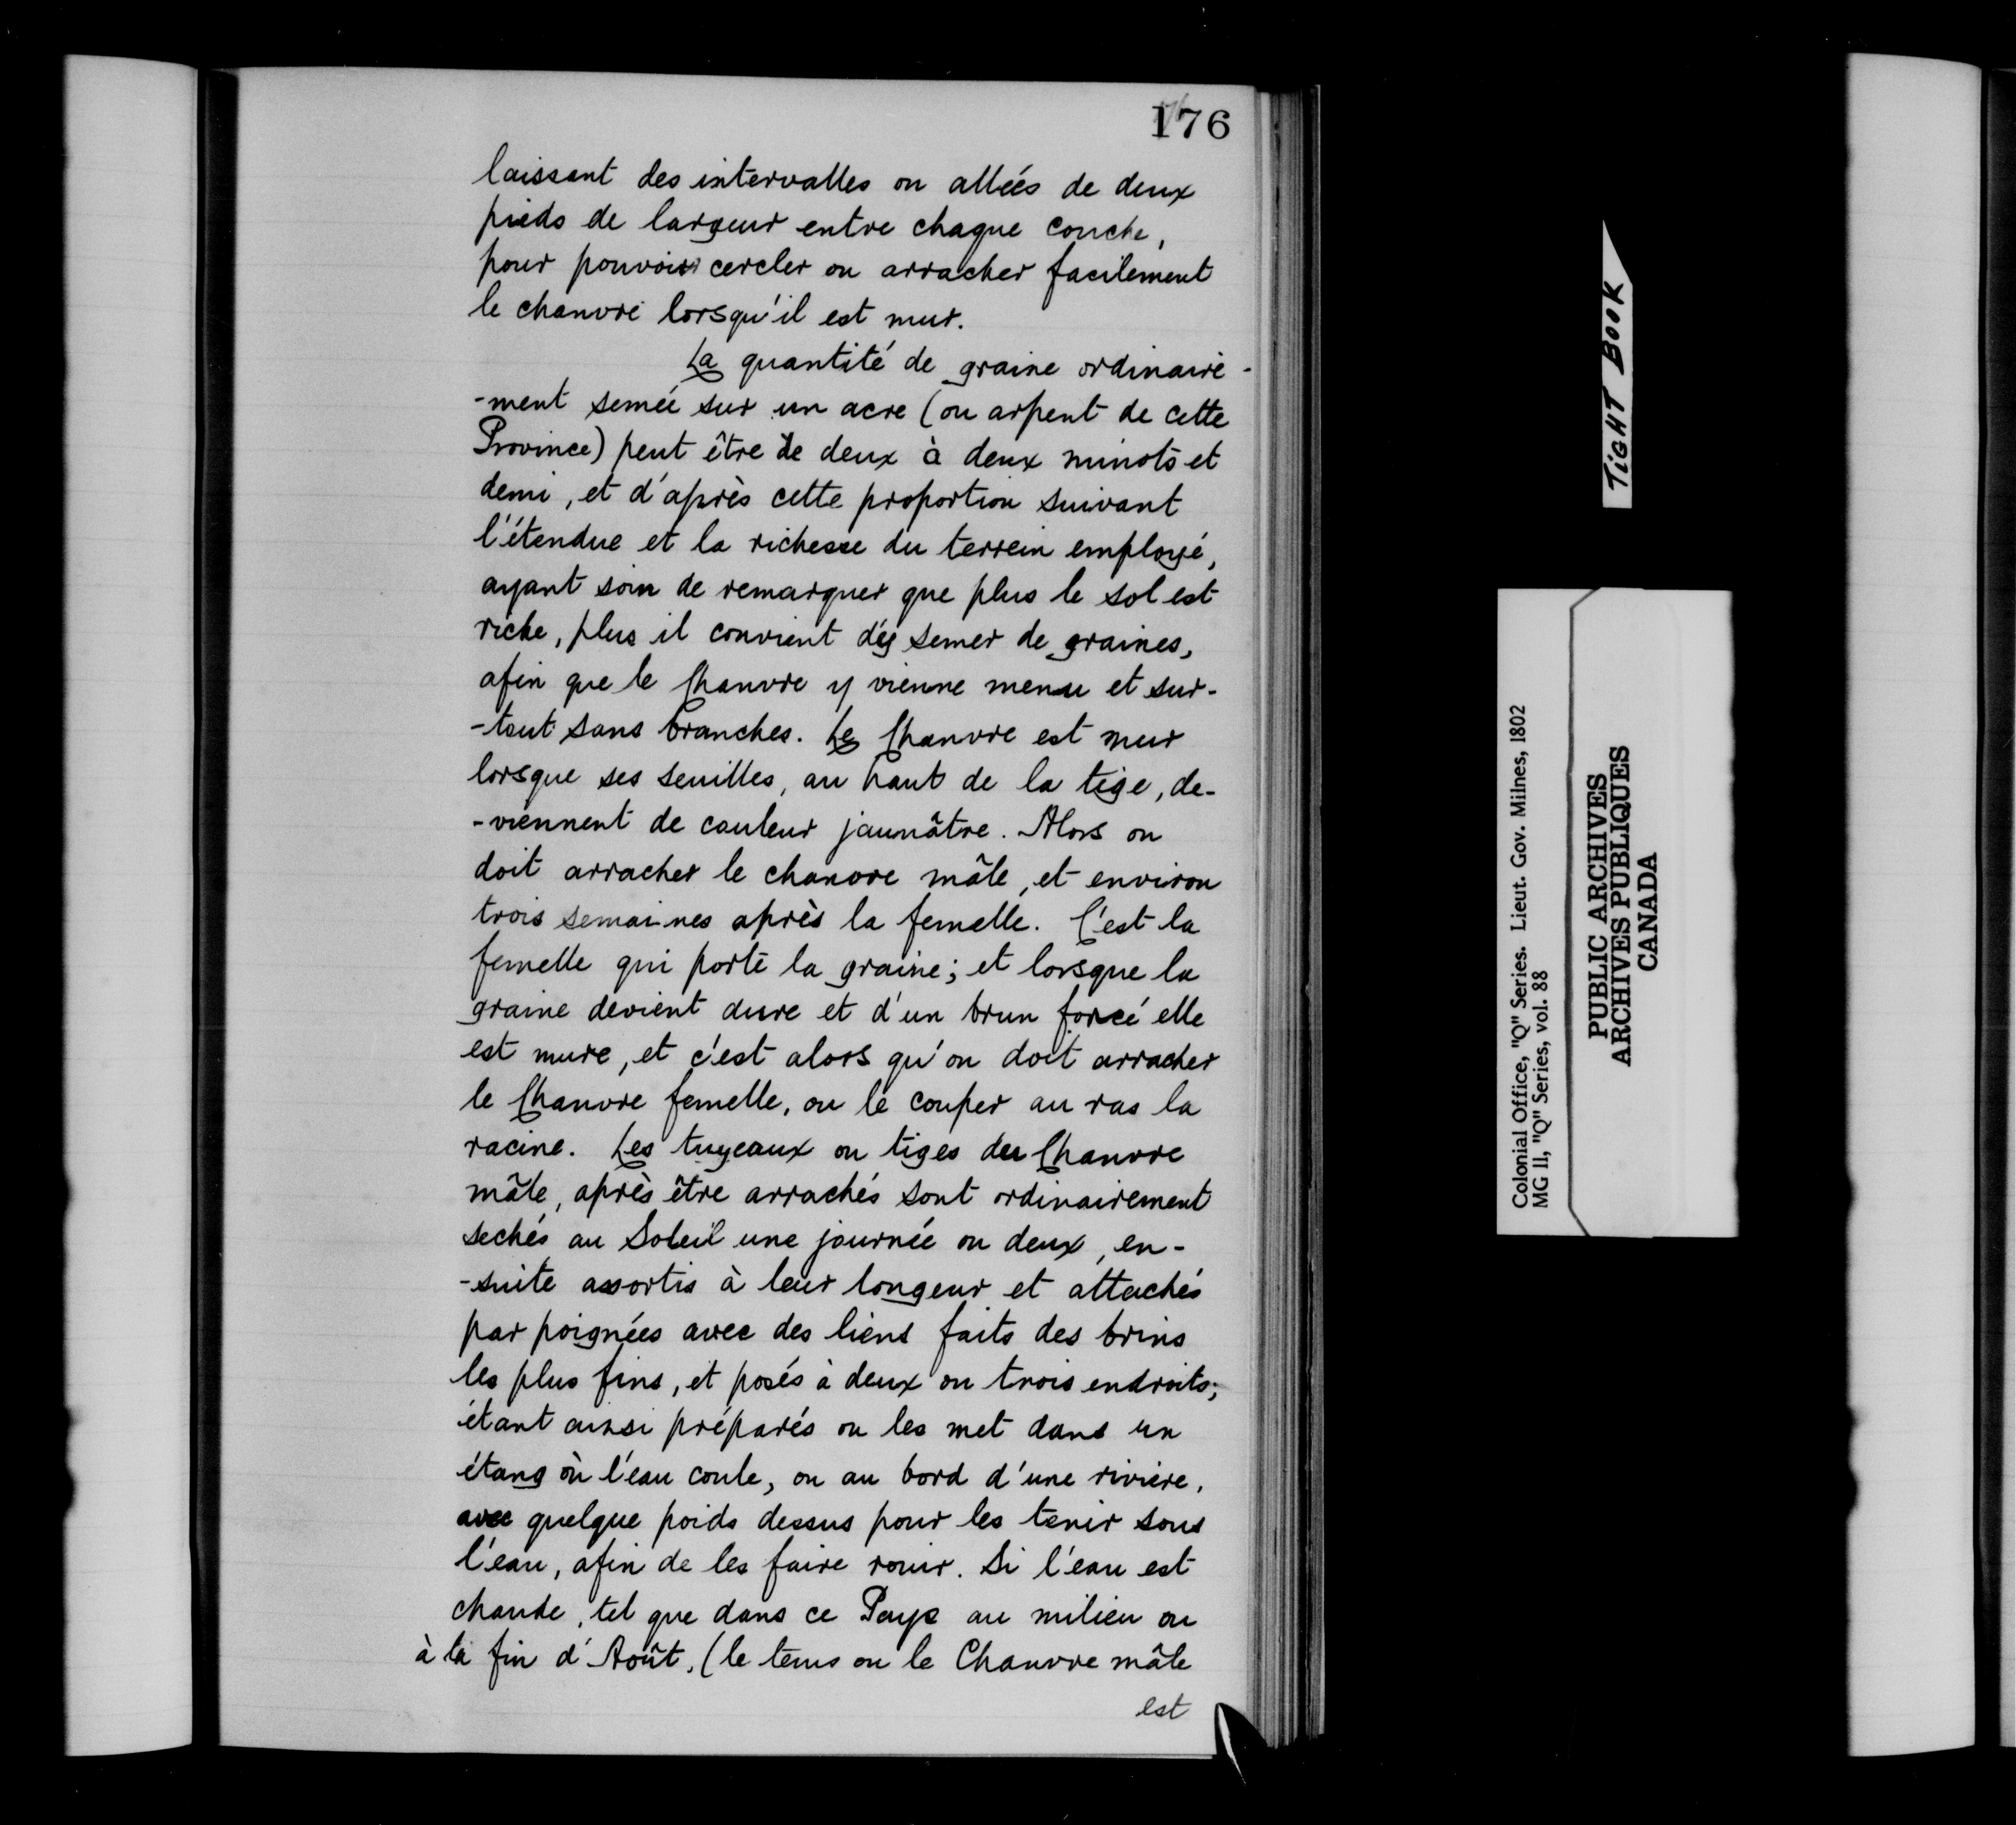 176
laissant des intervalles ou allées de deux
pieds de largeur entre chaque couche,
pour pouvoir cercler ou arracher facilement
le chanvre lorsqu'il est mur.
La quantité de graine ordinaire-
-ment semée sur un acre (ou arpent de cette
Province) peut être de deux à deux minots et
demi, et d'après cette proportion suivant
l'étendue et la richesse du terrein employé,
ayant soin de remarquer que plus le sol est
riche, plus il convient d'y semer de graines,
afin que le Chanvre y vienne menu et sur-
-tout sans branches. Le Chanvre est mur
lorsque ses feuilles, au haut de la tige, de-
-viennent de couleur jaunâtre. Alors on
doit arracher le chanvre mâle, et environ
trois semaines après la femelle. C'est la
femelle qui porte la graine; et lorsque la
graine devient dure et d'un brun forcé elle
est mure, et c'est alors qu'on doit arracher
le Chanvre femelle, ou le couper au ras la
racine. Les tuyeaux ou tiges du Chanvre
mâle, après être arrachés sont ordinairement
sechés au Soleil une journée ou deux, en-
-suite assortis à leur longeur et attachés
par poignées avec des liens faits des brins
les plus fins, et posés à deux ou trois endroits;
étant ainsi préparés on les met dans un
étang où l'eau coule, ou au bord d'une riviere,
avec quelque poids dessus pour les tenir sous
l'eau, afin de les faire rouir. Si l'eau est
chaude, tel que dans ce Pays au milieu ou
à la fin d'Août, (le tems ou le Chanvre mâle
est
TIGHT BOOK
Colonial Office, "Q" Series. Lieut. Gov. Milnes, 1802
MG 11, "Q" Series, vol. 88
PUBLIC ARCHIVES
ARCHIVES PUBLIQUES
CANADA